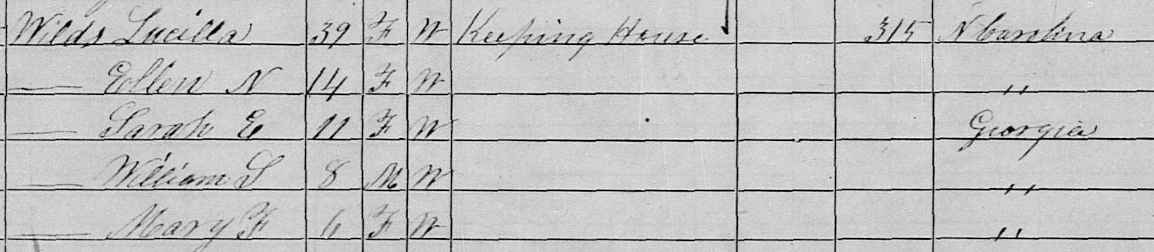 Wilds Lucilla 39 F W Keeping House 315 N Carolina
—— Ellen N 14 F W ,,
—— Sarah E 11 F W Georgia
—— William S 8 M W ,,
—— Mary F 6 F W ,,